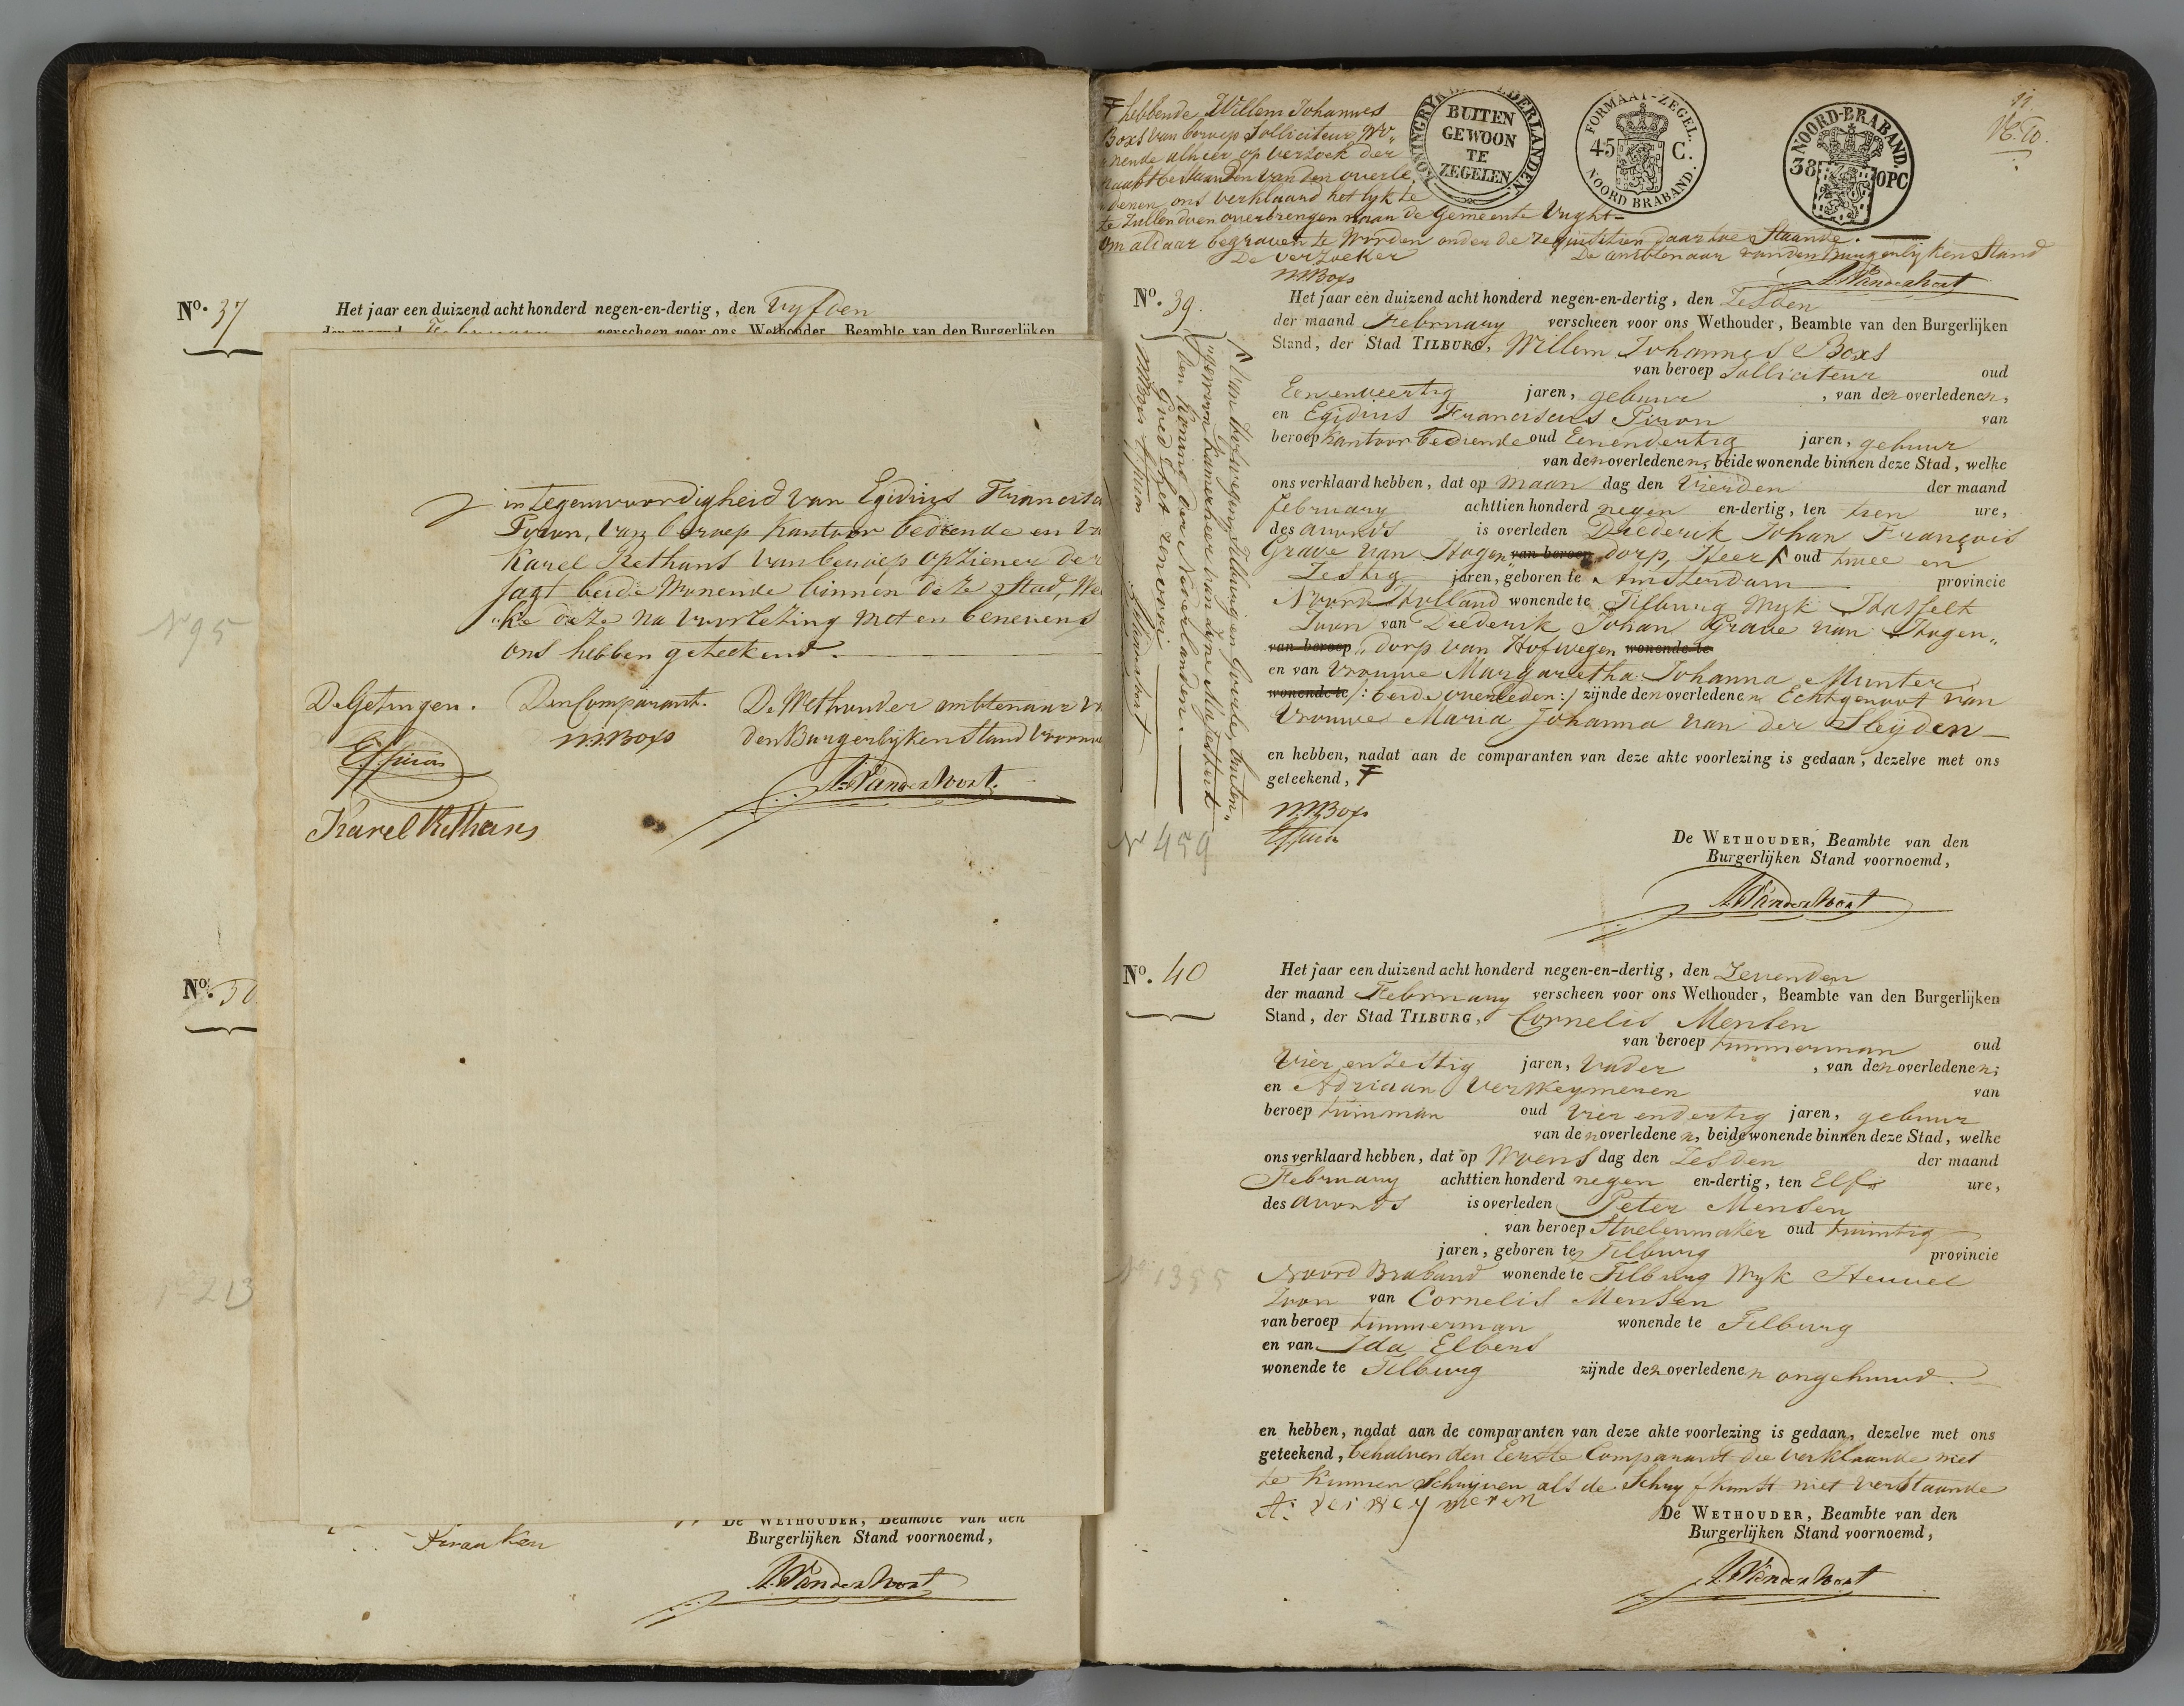 No. 37
Het jaar een duizend acht honderd negen-en-dertig, den Vyfden
No. 95
in tegenwoordigheid van Egidius Francisc
Piron, van beroep Kantoor bediende en va
Karel Rethans van beroep opziener der
Jagt beide wonende binnen deze Stad, wel
ke deze na voorlezing met en benevens
ons hebben geteekend.
De Getuigen. Den Comparant. De Wethouder ambtenaar v
den Burgerlyken Stand voorn
WJBoxs
Karel Rethans
AVanderVoort.
No.
213
Franken
De WETHOUDER, Beambte van den
Burgerlijken Stand voornoemd,
AVanderVoort
KONINGRYK DER NEDERLANDEN
BUITEN
GEWOON
TE
ZEGELEN
FORMAAT-ZEGEL.
45 C.
NOORD BRABAND.
NOORD-BRABAND.
38 OPC
F hebbende Willem Johannes
Boxs van beroep Solliciteur, wo-
nende alhier op verzoek der
naastbestaanden van den overle
denen ons verklaard het lyk te
te zullen doen overbrengen naar de Gemeente Vught-
om aldaar begraven te worden onder de requisitien daartoe staande.
De verzoeker De ambtenaar van den Burgerlyken Stand
WJBoxs AVanderVoort
No. 39.
Het jaar een duizend acht honderd negen-en-dertig, den Zesden
der maand February verscheen voor ons Wethouder, Beambte van den Burgerlijken
Stand, der Stad TILBURG, Willem Johannes Boxs
van beroep Solliciteur oud
Eenenveertig jaren, gebuur, van den overledenen,
en Egidius Franciscus Piron van
beroep Kantoor bediende oud Eenendertig jaren, gebuur
van den overledenen, beide wonende binnen deze Stad, welke
ons verklaard hebben, dat op Maan dag den Vierden der maand
February achttien honderd negen en-dertig, ten tien ure,
des avonds is overleden Diederik Johan François
Grave van Hogen„ van beroep dorp, Heer oud twee en
Zestig jaren, geboren te Amsterdam provincie
Noord Holland wonende te Tilburg Wyk Hasselt
Zoon van Diederik Johan Grave van Hogen„
van beroep „dorp van Hofwegen wonende te
en van Vrouwe Margaretha Johanna Munter
wonende te /: beide overleden:/ zijnde den overledenen Echtgenoot van
Vrouwe Maria Johanna van der Sleyden
en hebben, nadat aan de comparanten van deze akte voorlezing is gedaan, dezelve met ons
geteekend, F
WJBoxs
De WETHOUDER, Beambte van den
Burgerlijken Stand voornoemd,
AVanderVoort
van Hofwegen, Tilburg en Goirle, buiten„
„gewoon Kamerheer van Zyne Majesteit
den Koning der Nederlanden.
Goed het renvooi
WJBoxs
AVanderVoort
No 459
No. 40
Het jaar een duizend acht honderd negen-en-dertig, den Zevenden
der maand February verscheen voor ons Wethouder, Beambte van den Burgerlijken
Stand, der Stad TILBURG, Cornelis Mensen
van beroep timmerman oud
Vier en Zestig jaren, Vader, van den overledenen;
en Adriaan Verweymeren van
beroep tuinman oud Vier en dertig jaren, gebuur
van den overledenen, beide wonende binnen deze Stad, welke
ons verklaard hebben, dat op Woens dag den Zesden der maand
February achttien honderd negen en-dertig, ten Elf ure,
des avonds is overleden Peter Mensen
van beroep Stoelenmaker oud twintig
jaren, geboren te Tilburg provincie
Noord Braband wonende te Tilburg Wyk Heuvel
Zoon van Cornelis Mensen
van beroep timmerman wonende te Tilburg
en van Ida Elbers
wonende te Tilburg zijnde den overledenen ongehuwd.
No 1355
en hebben, nadat aan de comparanten van deze akte voorlezing is gedaan, dezelve met ons
geteekend, behalven den Eerste Comparant die verklaarde niet
te kunnen Schryven als de Schryfkunst niet verstaande
A: verweymeren
De WETHOUDER, Beambte van den
Burgerlijken Stand voornoemd,
AVanderVoort